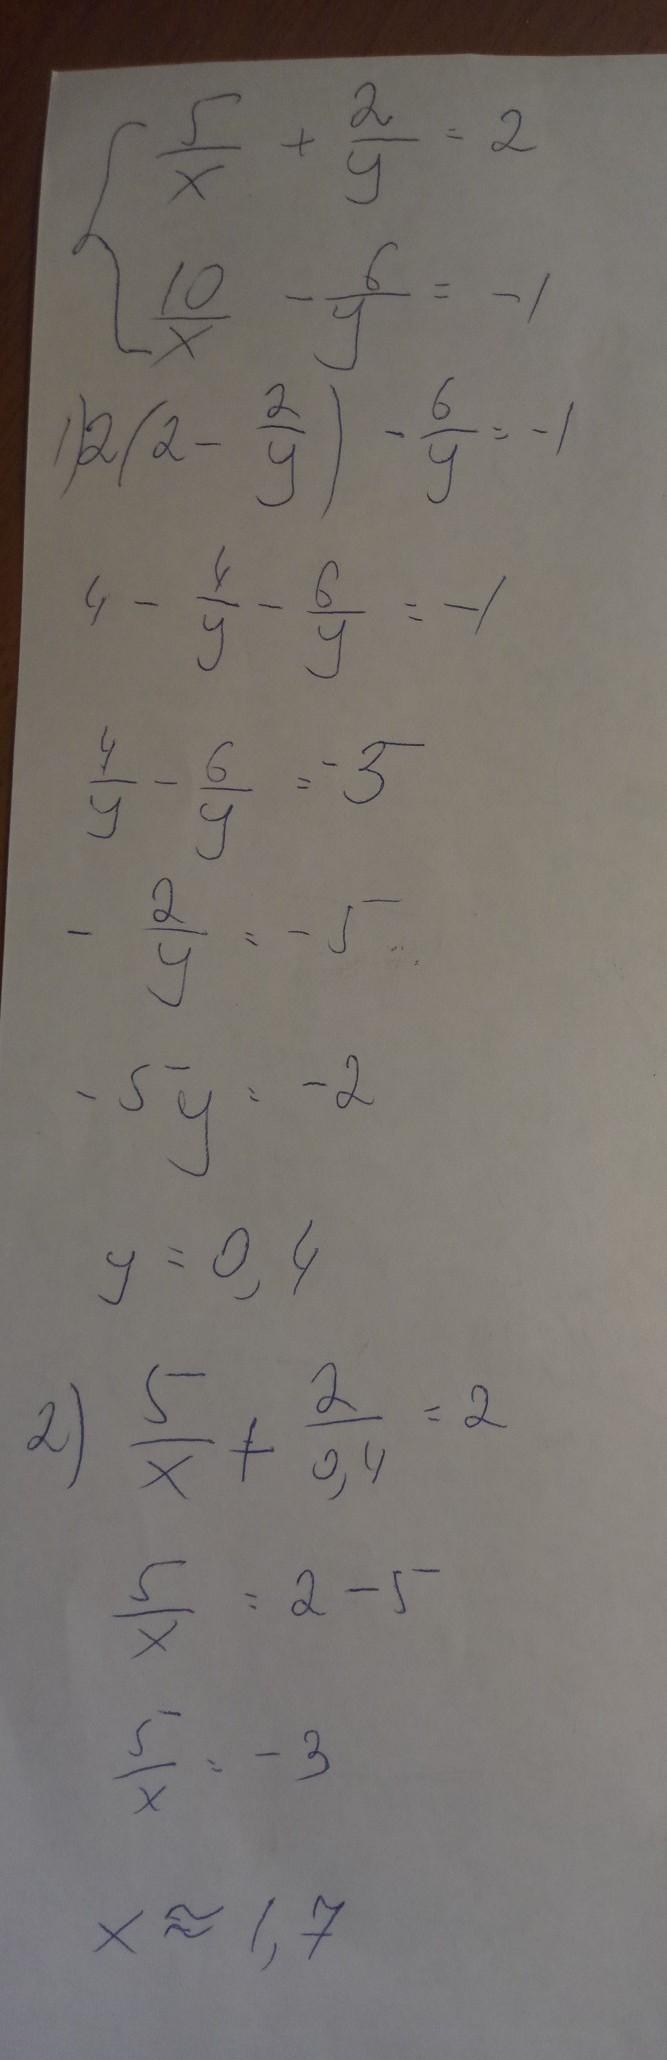 { 5/x + 2/y = 2
10/x - 6/y = -1
1) 2(2 - 2/y) - 6/y = -1
4 - 4/y - 6/y = -1
4/y - 6/y = -5
- 2/y = -5
-5y = -2
y = 0,4
2) 5/x + 2/0,4 = 2
5/x = 2 - 5
5/x = -3
x ≈ 1,7